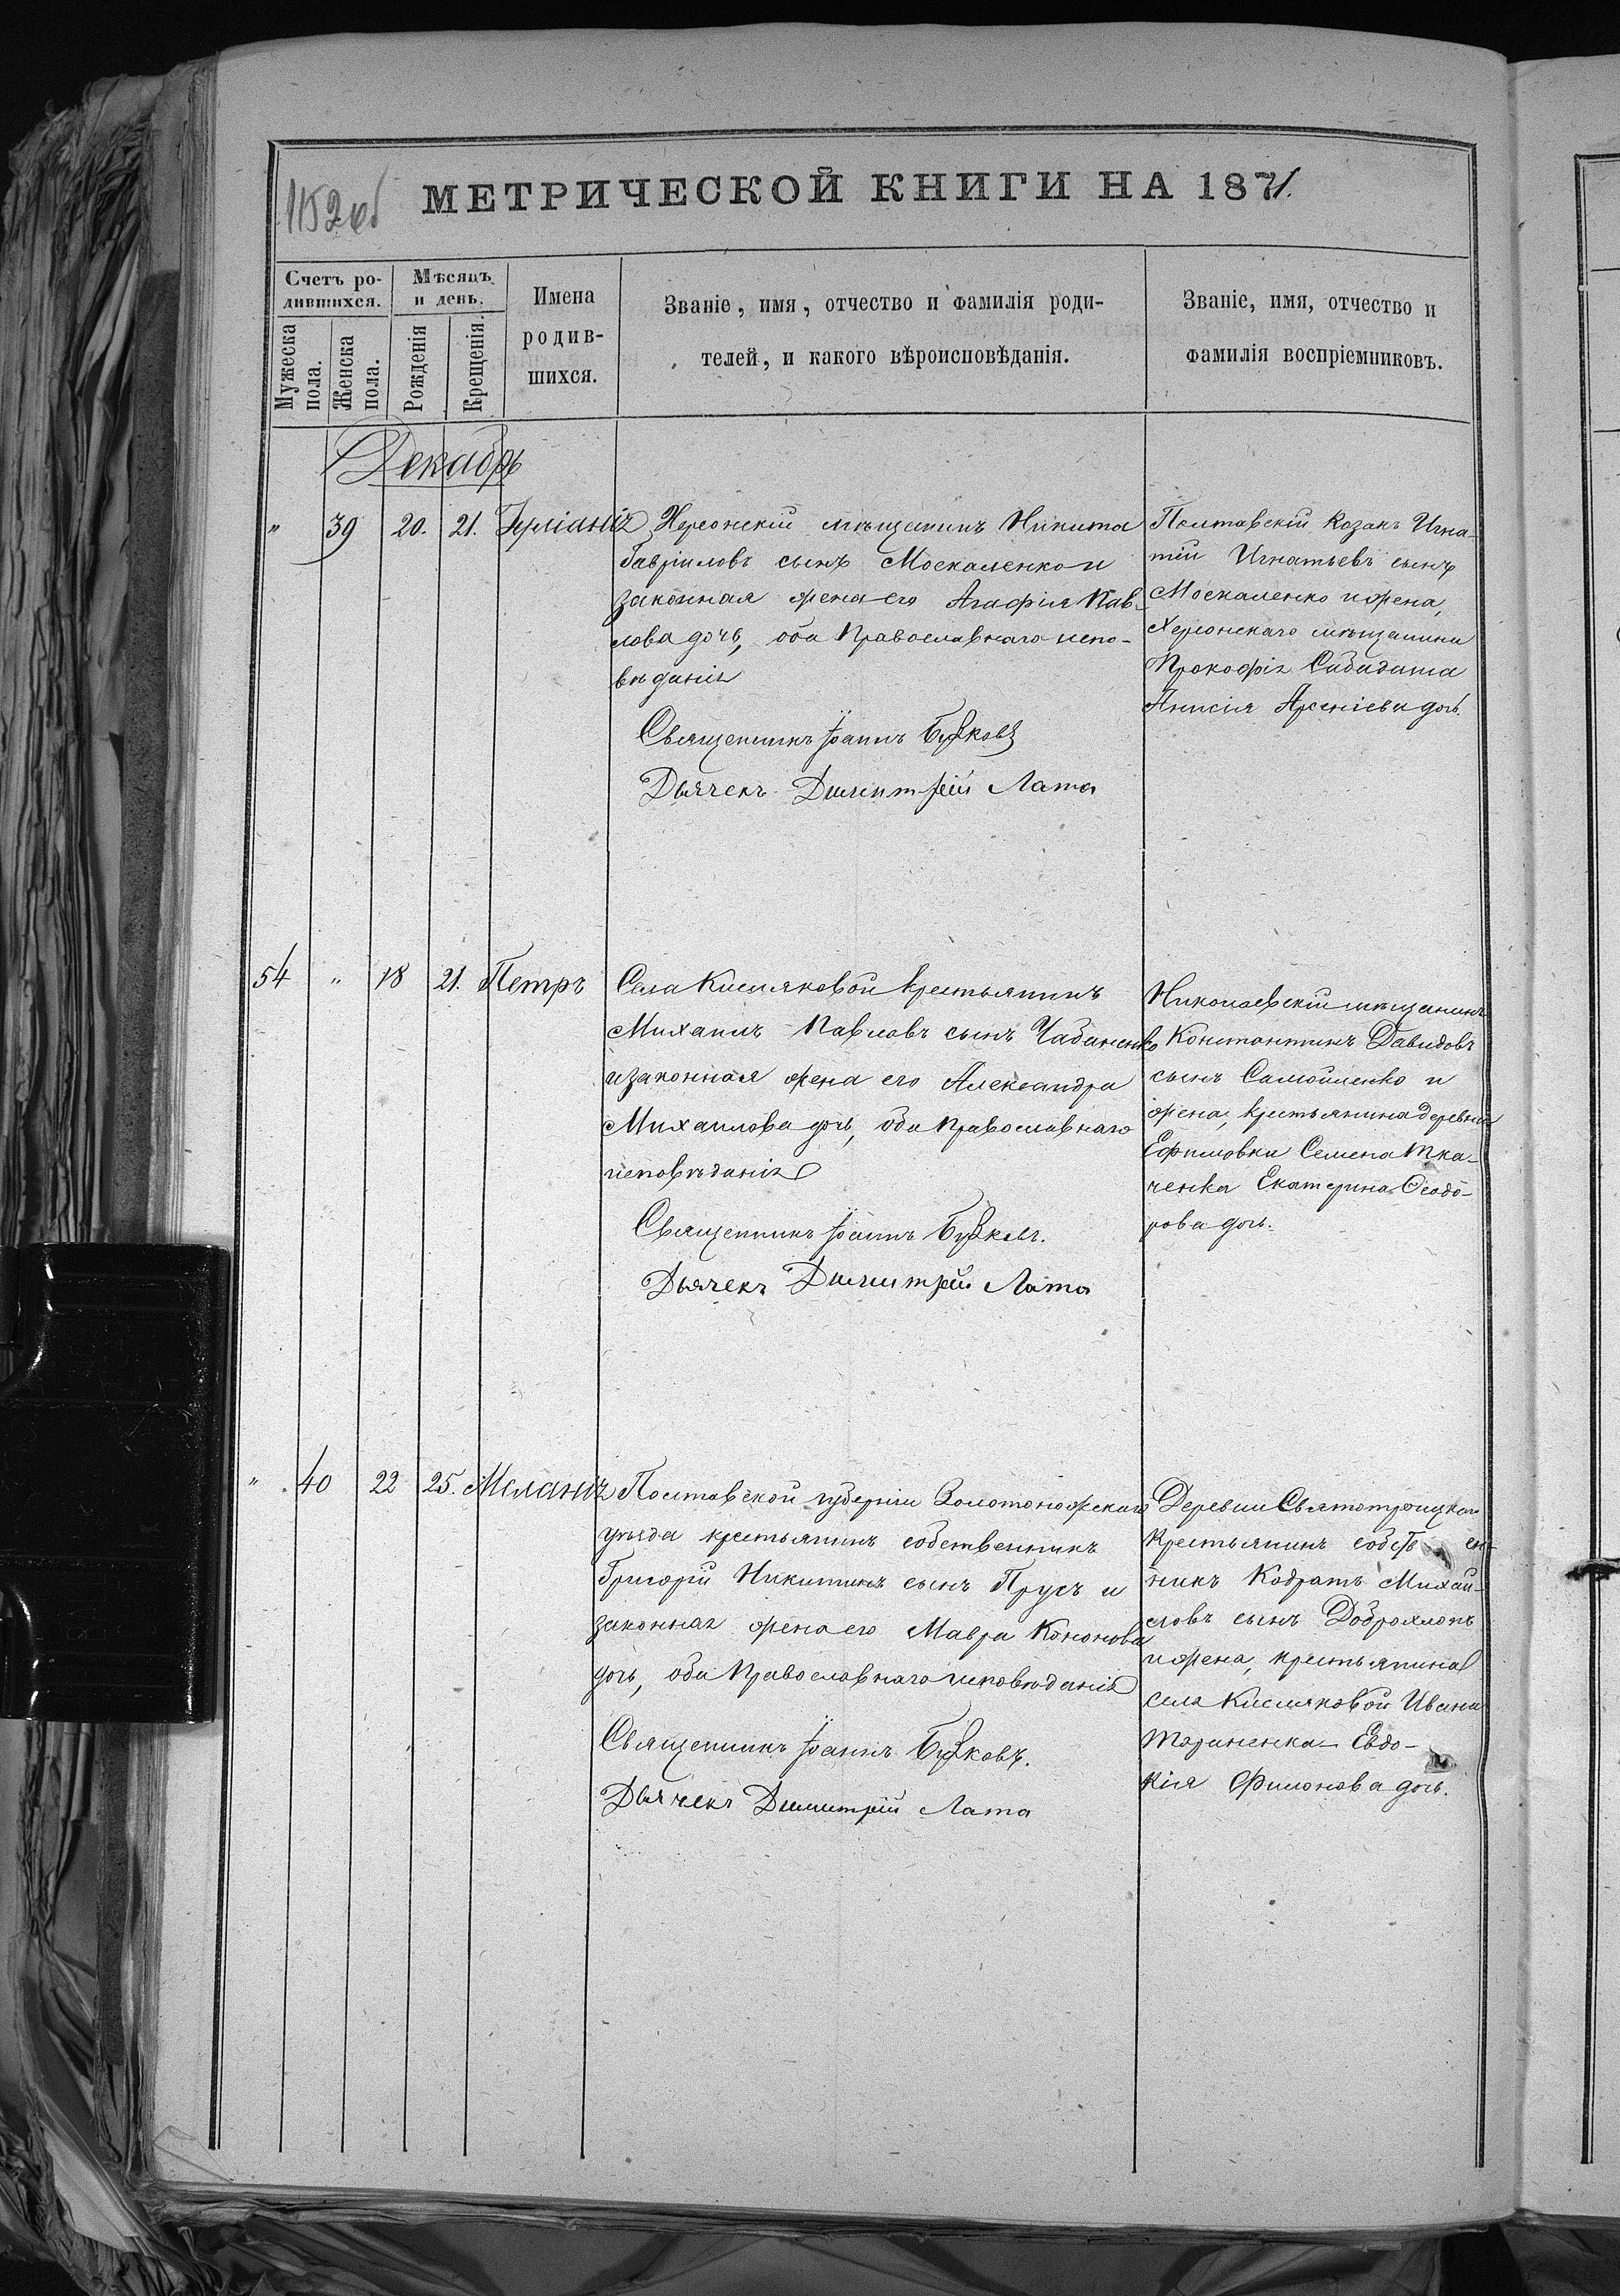 1152 об
МЕТРИЧЕСКОЙ КНИГИ НА 1871.
Счетъ ро-
дившихся.
Мѣсяцъ
и день.
Мужеска
пола.
Женска
пола.
Рожденія
Крещенія.
Имена
родив-
шихся.
Званіе, имя, отчество и фамилія роди-
телей, и какого вѣроисповѣданія.
Званіе, имя, отчество и
фамилія воспріемниковъ.
Декабрь
" 39 20. 21. Іуліанія
Херсонскій мѣщанинъ Никита
Гавріиловъ сынъ Москаленко и
законная жена его Агафія Пав-
лова дочь, оба Православнаго испо-
вѣданія
Священникъ Іоаннъ
Дьячекъ Димитрій Лата
Полтавскій козакъ Игна-
тій Игнатьевъ сынъ
Москаленко и жена,
Херсонскаго мѣщанина
Прокофія
Анисія Арсеніева дочь.
54 " 18 21. Петръ
Села Кисляковой крестьянинъ
Михаилъ Павловъ сынъ Чабаненко
и законная жена его Александра
Михаилова дочь, оба православнаго
исповѣданія
Священникъ Іоаннъ
Дьячекъ Димитрій Лата
Николаевскій мѣщанинъ
Константинъ Давидовъ
сынъ Самойленко и
жена, крестьянина деревни
Ефимовки Семена Тка-
ченка Екатерина Ѳеодо-
рова дочь.
" 40 22 25. Меланія
Полтавской губерніи Золотоножскаго
уѣзда крестьянинъ собственникъ
Григорій Никитинъ сынъ Прусъ и
законная жена его Мавра Кононова
дочь, оба Православнаго исповѣданія
Священникъ Іоаннъ
Дьячекъ Димитрій Лата
Деревни Святотроицкой
крестьянинъ собств ен-
никъ Кодратъ Михаи-
ловъ сынъ Доброхлопъ
и жена, крестьянина
села Кисляковой Ивана
Тараненка Евдо-
кія Филонова дочь.